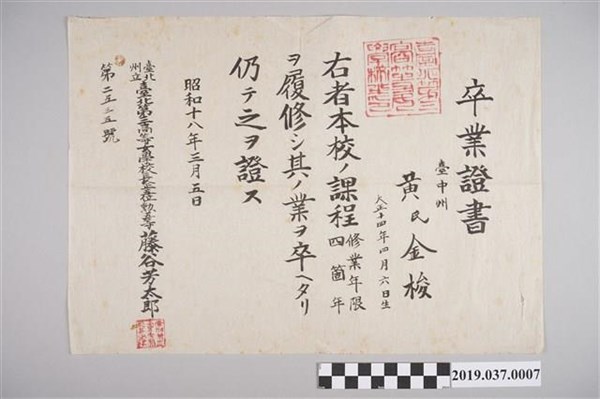 卒業證書
臺中州
黄氏金梭
大正十四年四月六日生
右者本校ノ課程修業年限四箇年
ヲ履修シ其ノ業ヲ卒ヘタリ
仍テ之ヲ證ス
昭和十八年三月五日
臺北州立臺北第三高等女學校長 藤谷芳太郎
第二五三五號
2019.037.0007